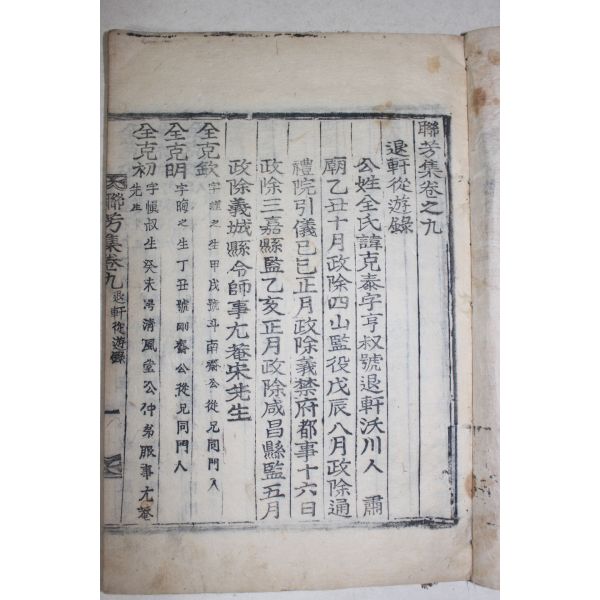 聯芳集卷之九
退軒從遊錄
公姓全氏諱克泰字亨叔號退軒沃川人 肅
廟乙丑十月政除四山監役戊辰八月政除通
禮院引儀己巳正月政除義禁府都事十六日
政除三嘉縣監乙亥正月政除咸昌縣監五月
政除義城縣令師事尤菴宋先生
全克欽 字謹之生甲戌號斗南齋公從兄同門人
全克明 字晦之生丁丑號剛齋公從兄同門人
全克初 字愼叔生癸未号清風堂公仲弟服事尤菴
先生
聯芳集卷九 退軒從遊錄 一